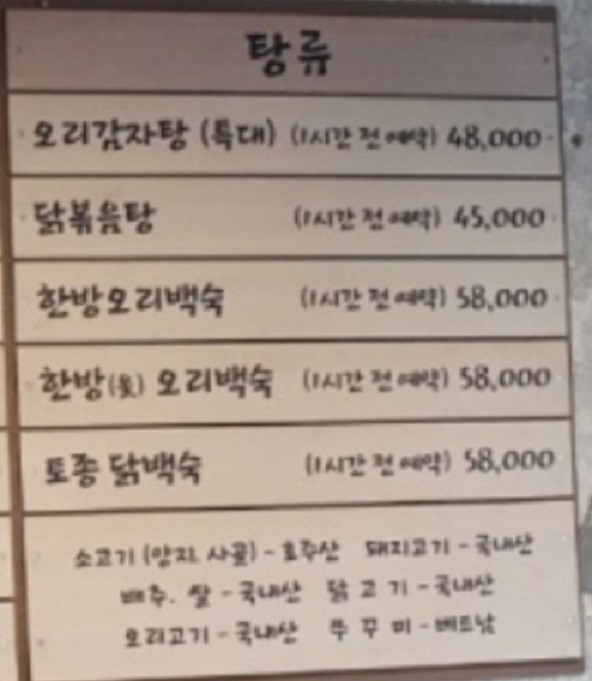 탕류
오리감자탕 (특대) (1시간 전 예약) 48,000
닭볶음탕 (1시간 전 예약) 45,000
한방오리백숙 (1시간 전 예약) 58,000
한방(옻) 오리백숙 (1시간 전 예약) 58,000
토종 닭백숙 (1시간 전 예약) 58,000
소고기 (양지. 사골) - 호주산 돼지고기 - 국내산
배추. 쌀 - 국내산 닭고기 - 국내산
오리고기 - 국내산 쭈꾸미 - 베트남